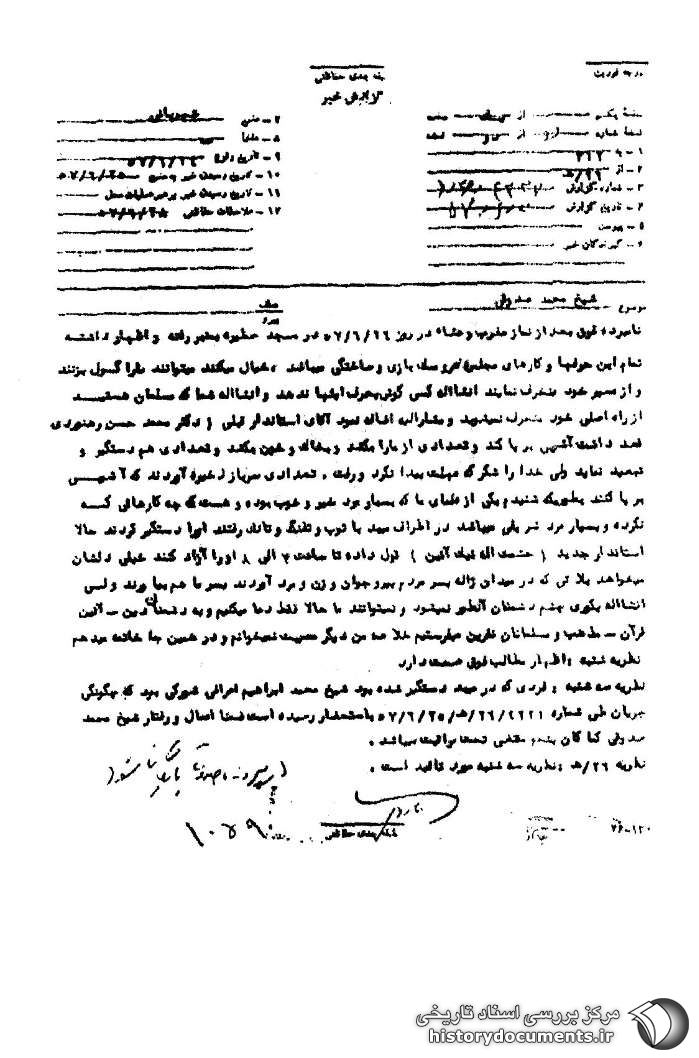 درجه فوریت
طبقه بندی حفاظتی
گزارش خبر
صفحه یکم از
نسخه شماره از نسخه
۱ - به ۳۱۲
۲ - از ۲۶/ه
۳ - شماره گزارش
۴ - تاریخ گزارش
۵ - پیوست
۶ - گیرندگان خبر
۷ - منبع
۸ - منشأ
۹ - تاریخ وقوع ۵۷/۶/۲۴
۱۰ - تاریخ رسیدن خبر به منبع ۵۷/۶/۲۵
۱۱ - تاریخ رسیدن خبر به رهبر عملیات محل
۱۲ - ملاحظات حفاظتی ۵۷/۶/۲۸
موضوع شیخ محمد صدوقی
نامبرده فوق بعد از نماز مغرب و عشاء در روز ۵۷/۶/۲۶ در مسجد حظیره بمنبر رفته و اظهار داشته
تمام این حرفها و کارهای مجلس عروسک بازی و ساختگی میباشد خیال میکنند میتوانند ما را گول بزنند
و از مسیر خود منحرف نمایند انشااله کسی گوش بحرف اینها ندهد و انشااله شما که مسلمان هستید
از راه اصلی خود منحرف نمیشوید و مشارالیه اضافه نمود آقای استاندار قبلی ( دکتر محمد حسن رهنوردی
قصد داشت آتشی بر پا کند و تعدادی از ما را بکشد و بخاک و خون بکشد و تعدادی هم دستگیر و
تبعید نماید ولی خدا را شکر که مهلت پیدا نکرد و رفت ، تعدادی سرباز ذخیره آوردند که آتشی
بر پا کنند بطوریکه شنیدم یکی از علمای ما که بسیار مرد خیر و خوب بوده و هست که چه کارهائی کسه
نکرده و بسیار مرد شریفی میباشد در اطراف میبد با توپ و تفنگ و تانک رفتند او را دستگیر کردند حالا
استاندار جدید ( حشمت اله نیک آئین ) قول داده تا ساعت ۴ الی ۸ او را آزاد کنند خیلی دلشان
میخواهد بلائی که در میدان ژاله بسر مردم پیرو جوان و زن و مرد آوردند بسر ما هم بیاورند ولی
انشااله بکوری چشم دشمنان آنطور نمیشود و نمیتوانند ما حالا فقط دعا میکنیم و به دشمنان دین - آئین
قرآن - مذهب و مسلمانان نفرین میفرستیم خلاصه من دیگر صحبت نمیخوانم و در همین جا خاتمه میدهم
نظریه شنبه : اظهار مطالب فوق صحت دارد
نظریه سه شنبه : فردی که در میبد دستگیر شده بود شیخ محمد ابراهیم اعرافی شورکی بود که چگونگی
جریان طی شماره ۲۶/۴۲۲۱/ه - ۵۷/۶/۲۵ باستحضار رسیده است ضمنا اعمال و رفتار شیخ محمد
صدوقی کما کان بنحو مقتضی تحت مراقبت میباشد .
نظریه ۲۶/ه : نظریه سه شنبه مورد تائید است .
طبقه بندی حفاظتی
۱۰۶۹۰
۷۶-۱۲۰
مرکز بررسی اسناد تاریخی
historydocuments.ir